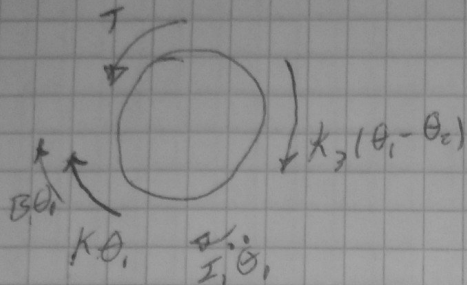 T
K₃(θ₁-θ₂)
Bθ̇₁
Kθ₁
I₁θ̈₁